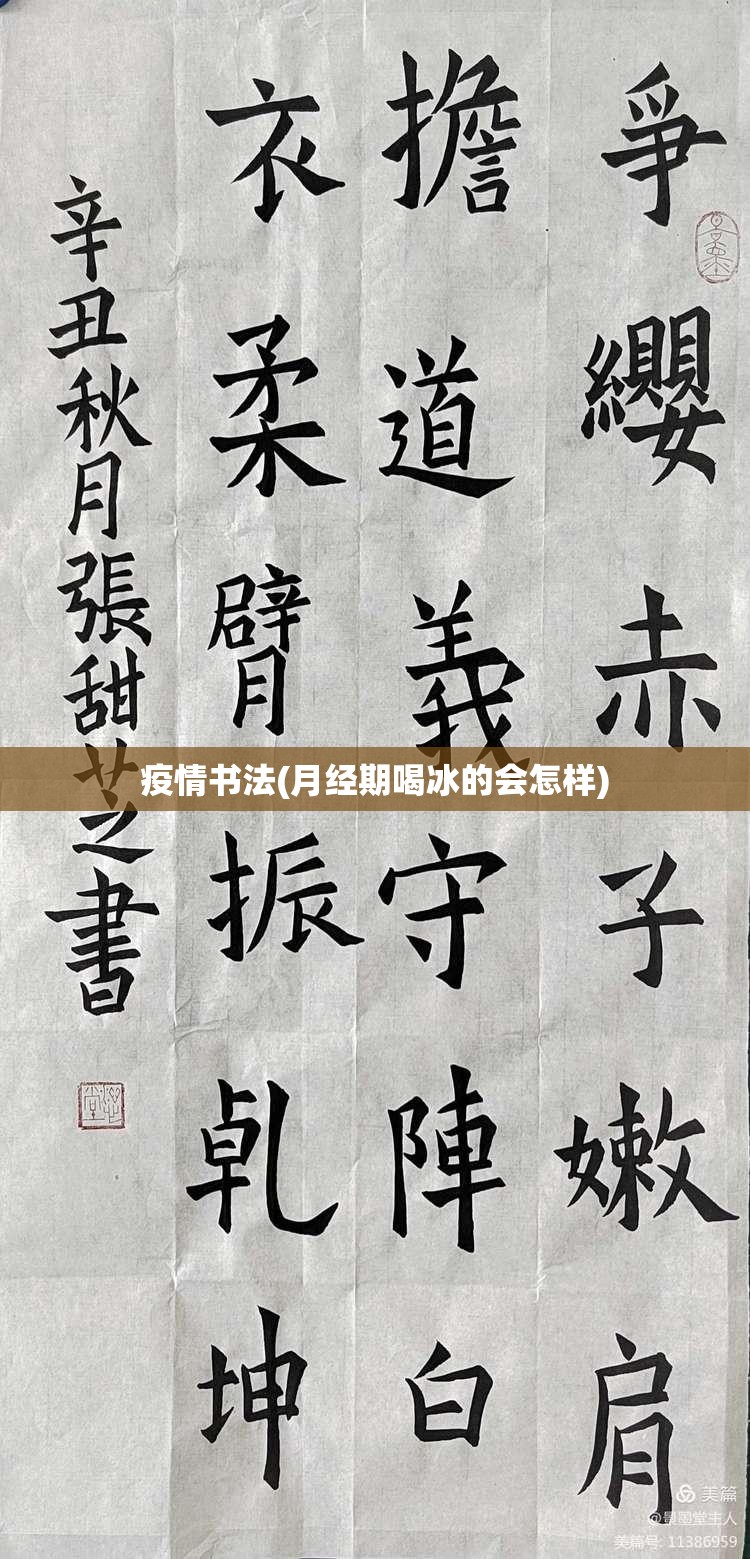 爭纓赤子嫩肩
擔道義守陣白
衣柔臂振乹坤
辛丑秋月張甜芝書
疫情书法(月经期喝冰的会怎样)
美篇
美篇号: 11386959